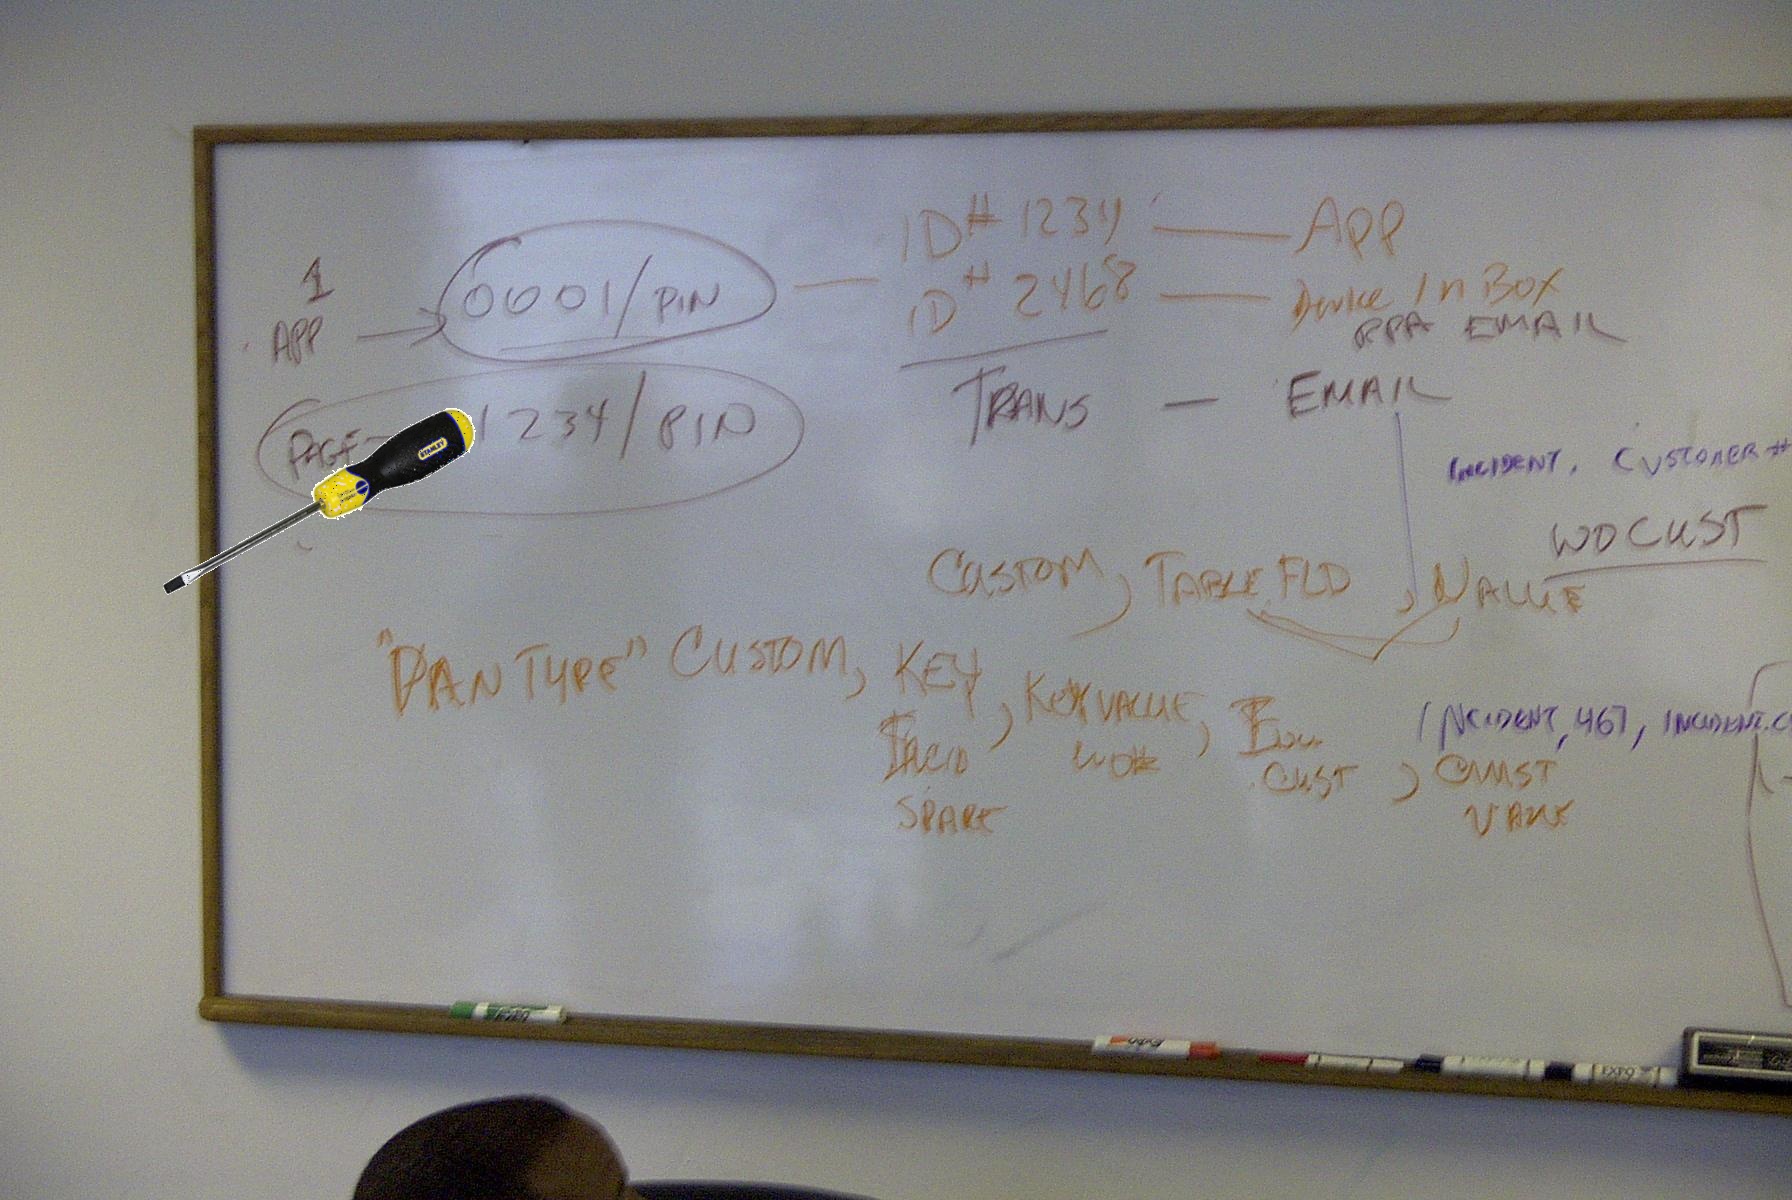 1
APP
0001/PIN
ID# 1234 — APP
ID# 2468 — Device In Box
EMAIL
PAGE 1234/PIN
TRANS — EMAIL
INCIDENT, CUSTOMER #
WO CUST
CUSTOM, TABLE.FLD, VALUE
"PAN TYPE" CUSTOM, KEY, KEY VALUE,
INCIDENT, 467, INCIDENT.C
WO#
CUST, CUST
SPARE
VALUE
STANLEY
EXPO